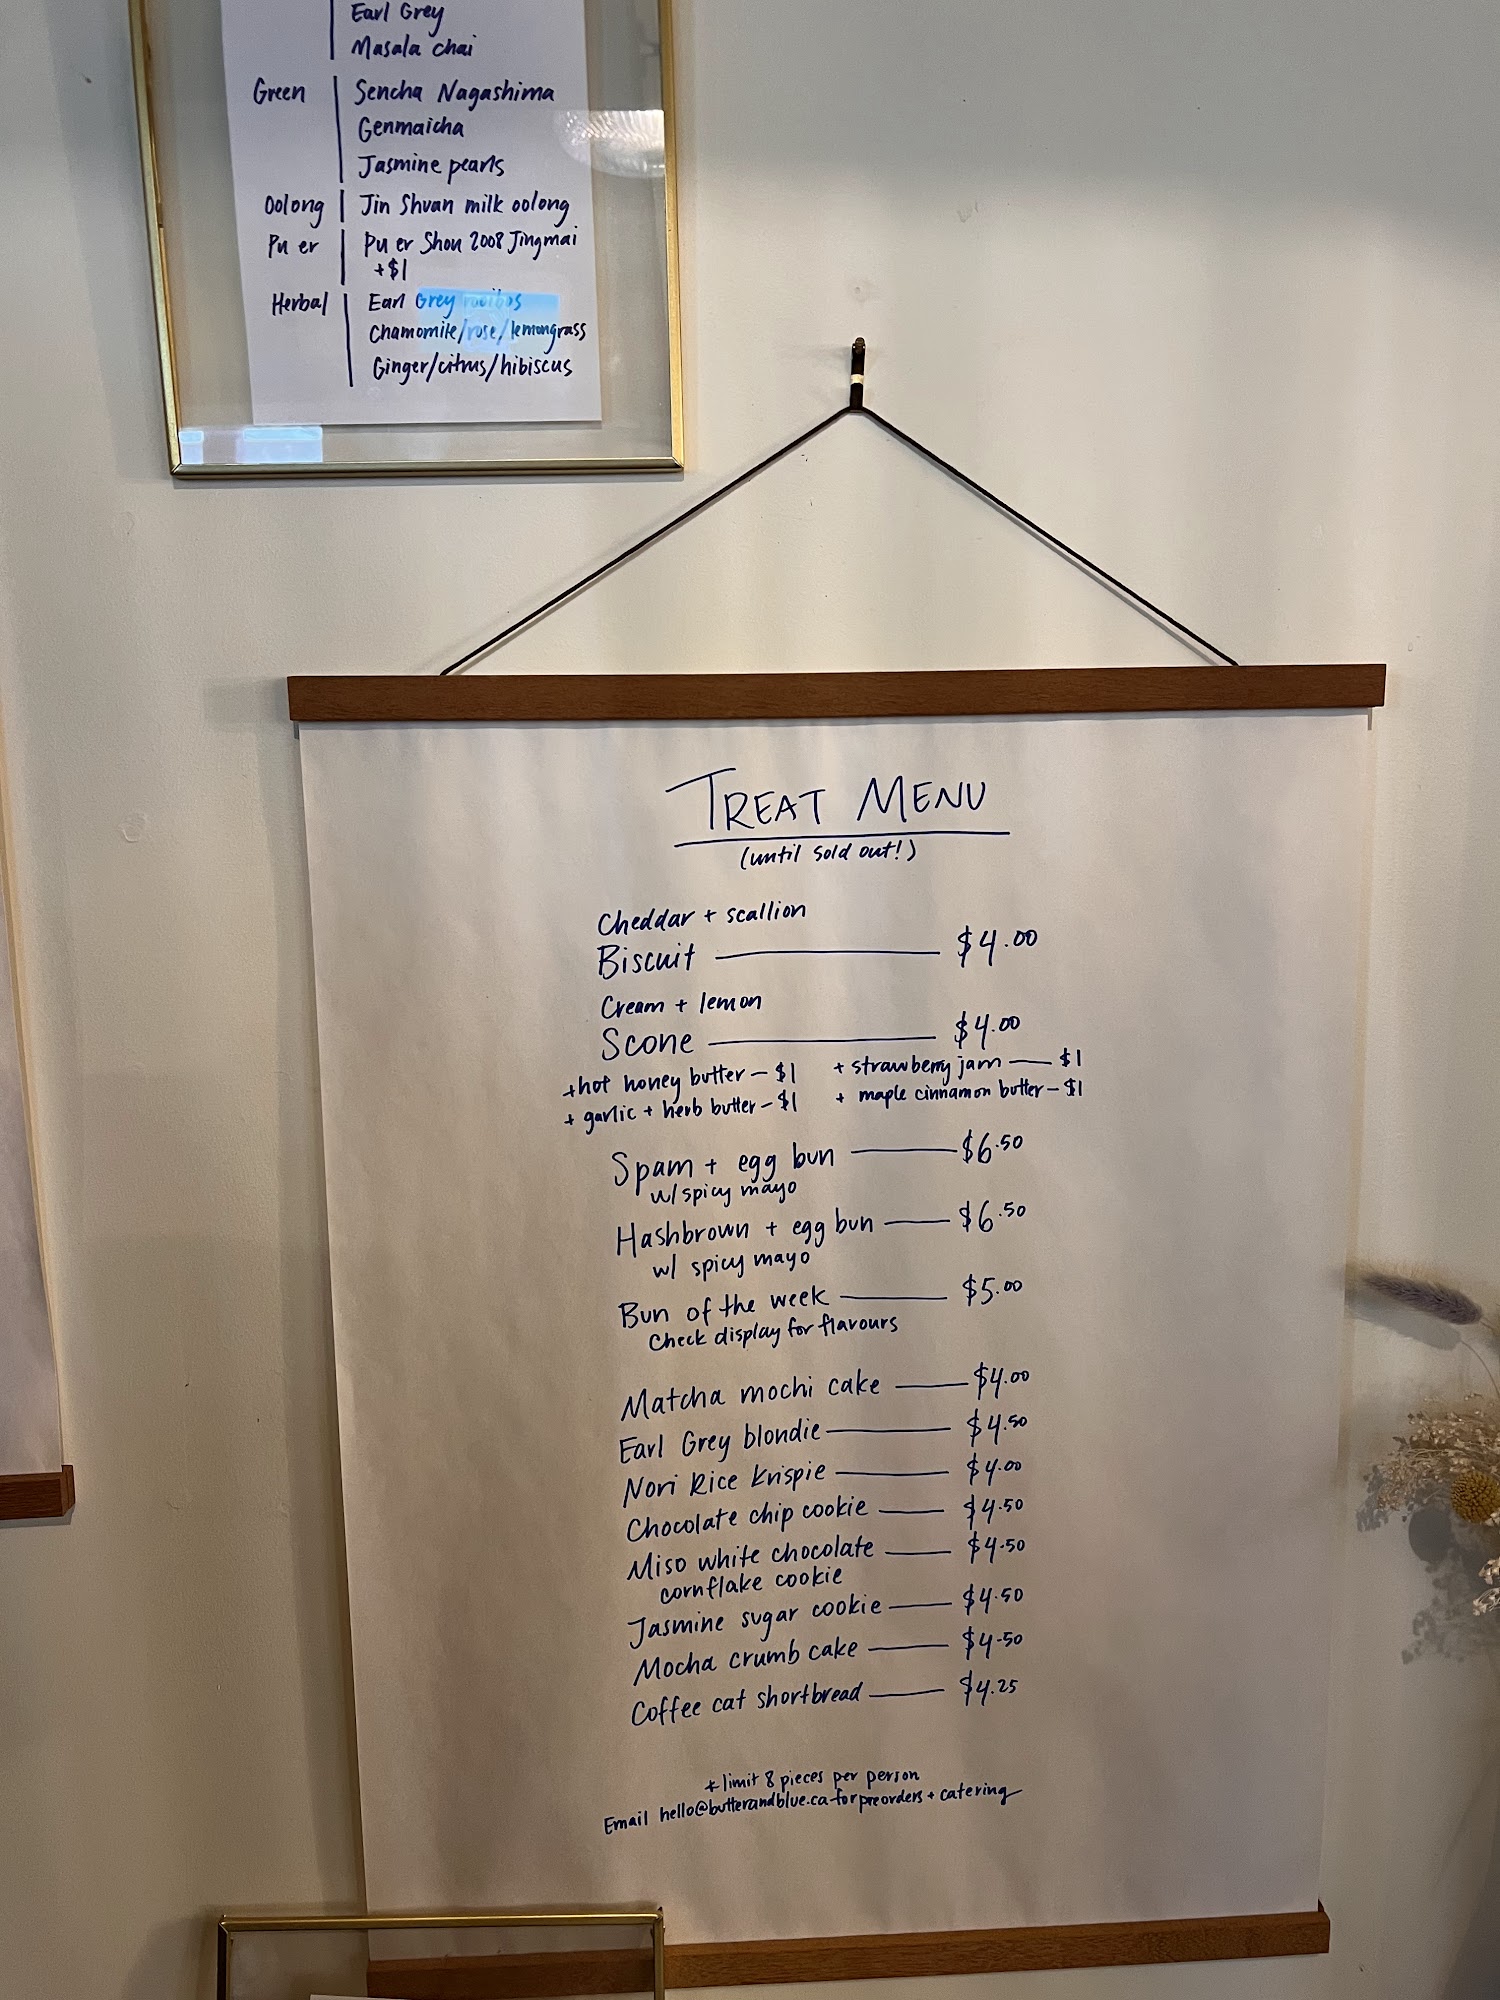 Earl Grey
Masala chai
Green | Sencha Nagashima
Genmaicha
Jasmine pearls
Oolong | Jin Shuan milk oolong
Pu er | Pu er Shou 2008 Jingmai
+$1
Herbal | Earl Grey rooibos
Chamomile/rose/lemongrass
Ginger/citrus/hibiscus
TREAT MENU
(until sold out!)
Cheddar + scallion
Biscuit — $4.00
Cream + lemon
Scone — $4.00
+hot honey butter — $1 + strawberry jam — $1
+ garlic + herb butter — $1 + maple cinnamon butter — $1
Spam + egg bun — $6.50
w/ spicy mayo
Hashbrown + egg bun — $6.50
w/ spicy mayo
Bun of the week — $5.00
Check display for flavours
Matcha mochi cake — $4.00
Earl Grey blondie — $4.50
Nori Rice Krispie — $4.00
Chocolate chip cookie — $4.50
Miso white chocolate — $4.50
cornflake cookie
Jasmine sugar cookie — $4.50
Mocha crumb cake — $4.50
Coffee cat shortbread — $4.25
* limit 8 pieces per person
Email hello@butterandblue.ca for preorders + catering